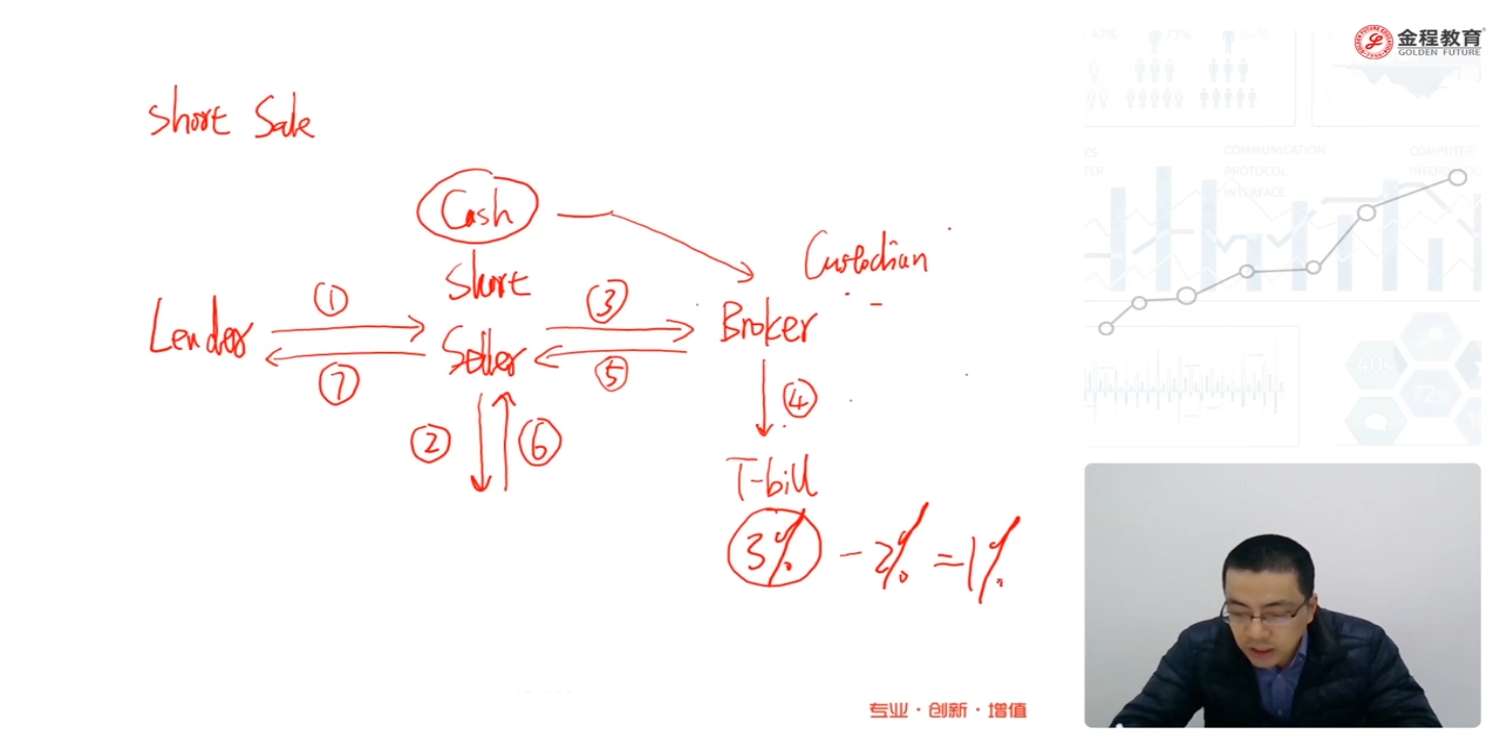 金程教育
GOLDEN FUTURE
Short Sale
Cash
Custodian
Short
Seller
Lender
Broker
①
③
⑦
⑤
②
⑥
④
T-bill
3% - 2% = 1%
COMMUNICATION
PROTOCOL
INTERFACE
专业·创新·增值